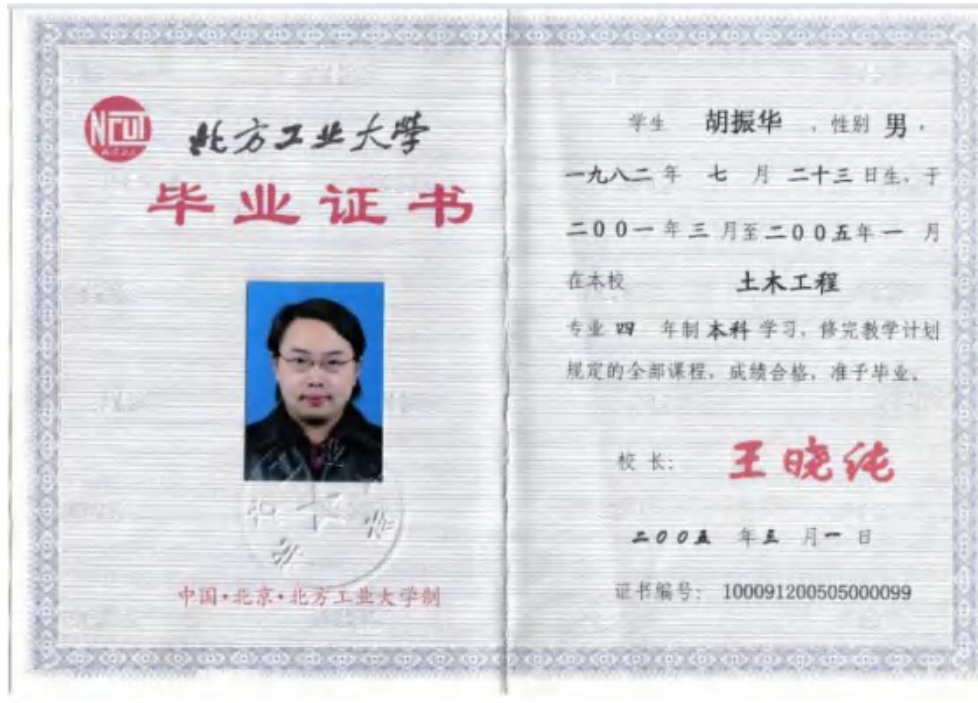 NCUT
北方工业大学
毕业证书
中国·北京·北方工业大学制
学生 胡振华 ，性别 男，
一九八二 年 七 月 二十三 日生，于
二00一 年 三 月至 二00五 年 一 月
在本校 土木工程
专业 四 年制 本科 学习，修完教学计划
规定的全部课程，成绩合格，准予毕业。
校 长： 王晓纯
二00五 年 三 月 一 日
证书编号： 100091200505000099